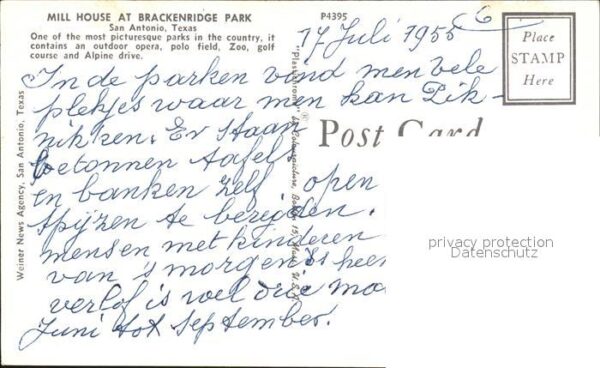 MILL HOUSE AT BRACKENRIDGE PARK
San Antonio, Texas
One of the most picturesque parks in the country, it
contains an outdoor opera, polo field, Zoo, golf
course and Alpine drive.
P4395
Place
STAMP
Here
17 Juli 1955
In de parken vind men vele
plekjes waar men kan Pik-
nikken. Er staan
betonnen tafel
en banken zelf open
spijzen te bereiden.
mensen met kinderen
van 's morgens heen
verlof is wel drie ma
Juni tot September.
Post Card
Weiner News Agency, San Antonio, Texas
"Plastichrome" ®
privacy protection
Datenschutz